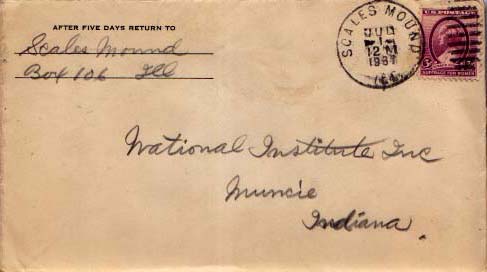 AFTER FIVE DAYS RETURN TO
Scales Mound
Box 106 Ill
SCALES MOUND
12 M
ILL.
U.S. POSTAGE
3¢
SUFFRAGE FOR WOMEN
National Institute Inc
Muncie
Indiana